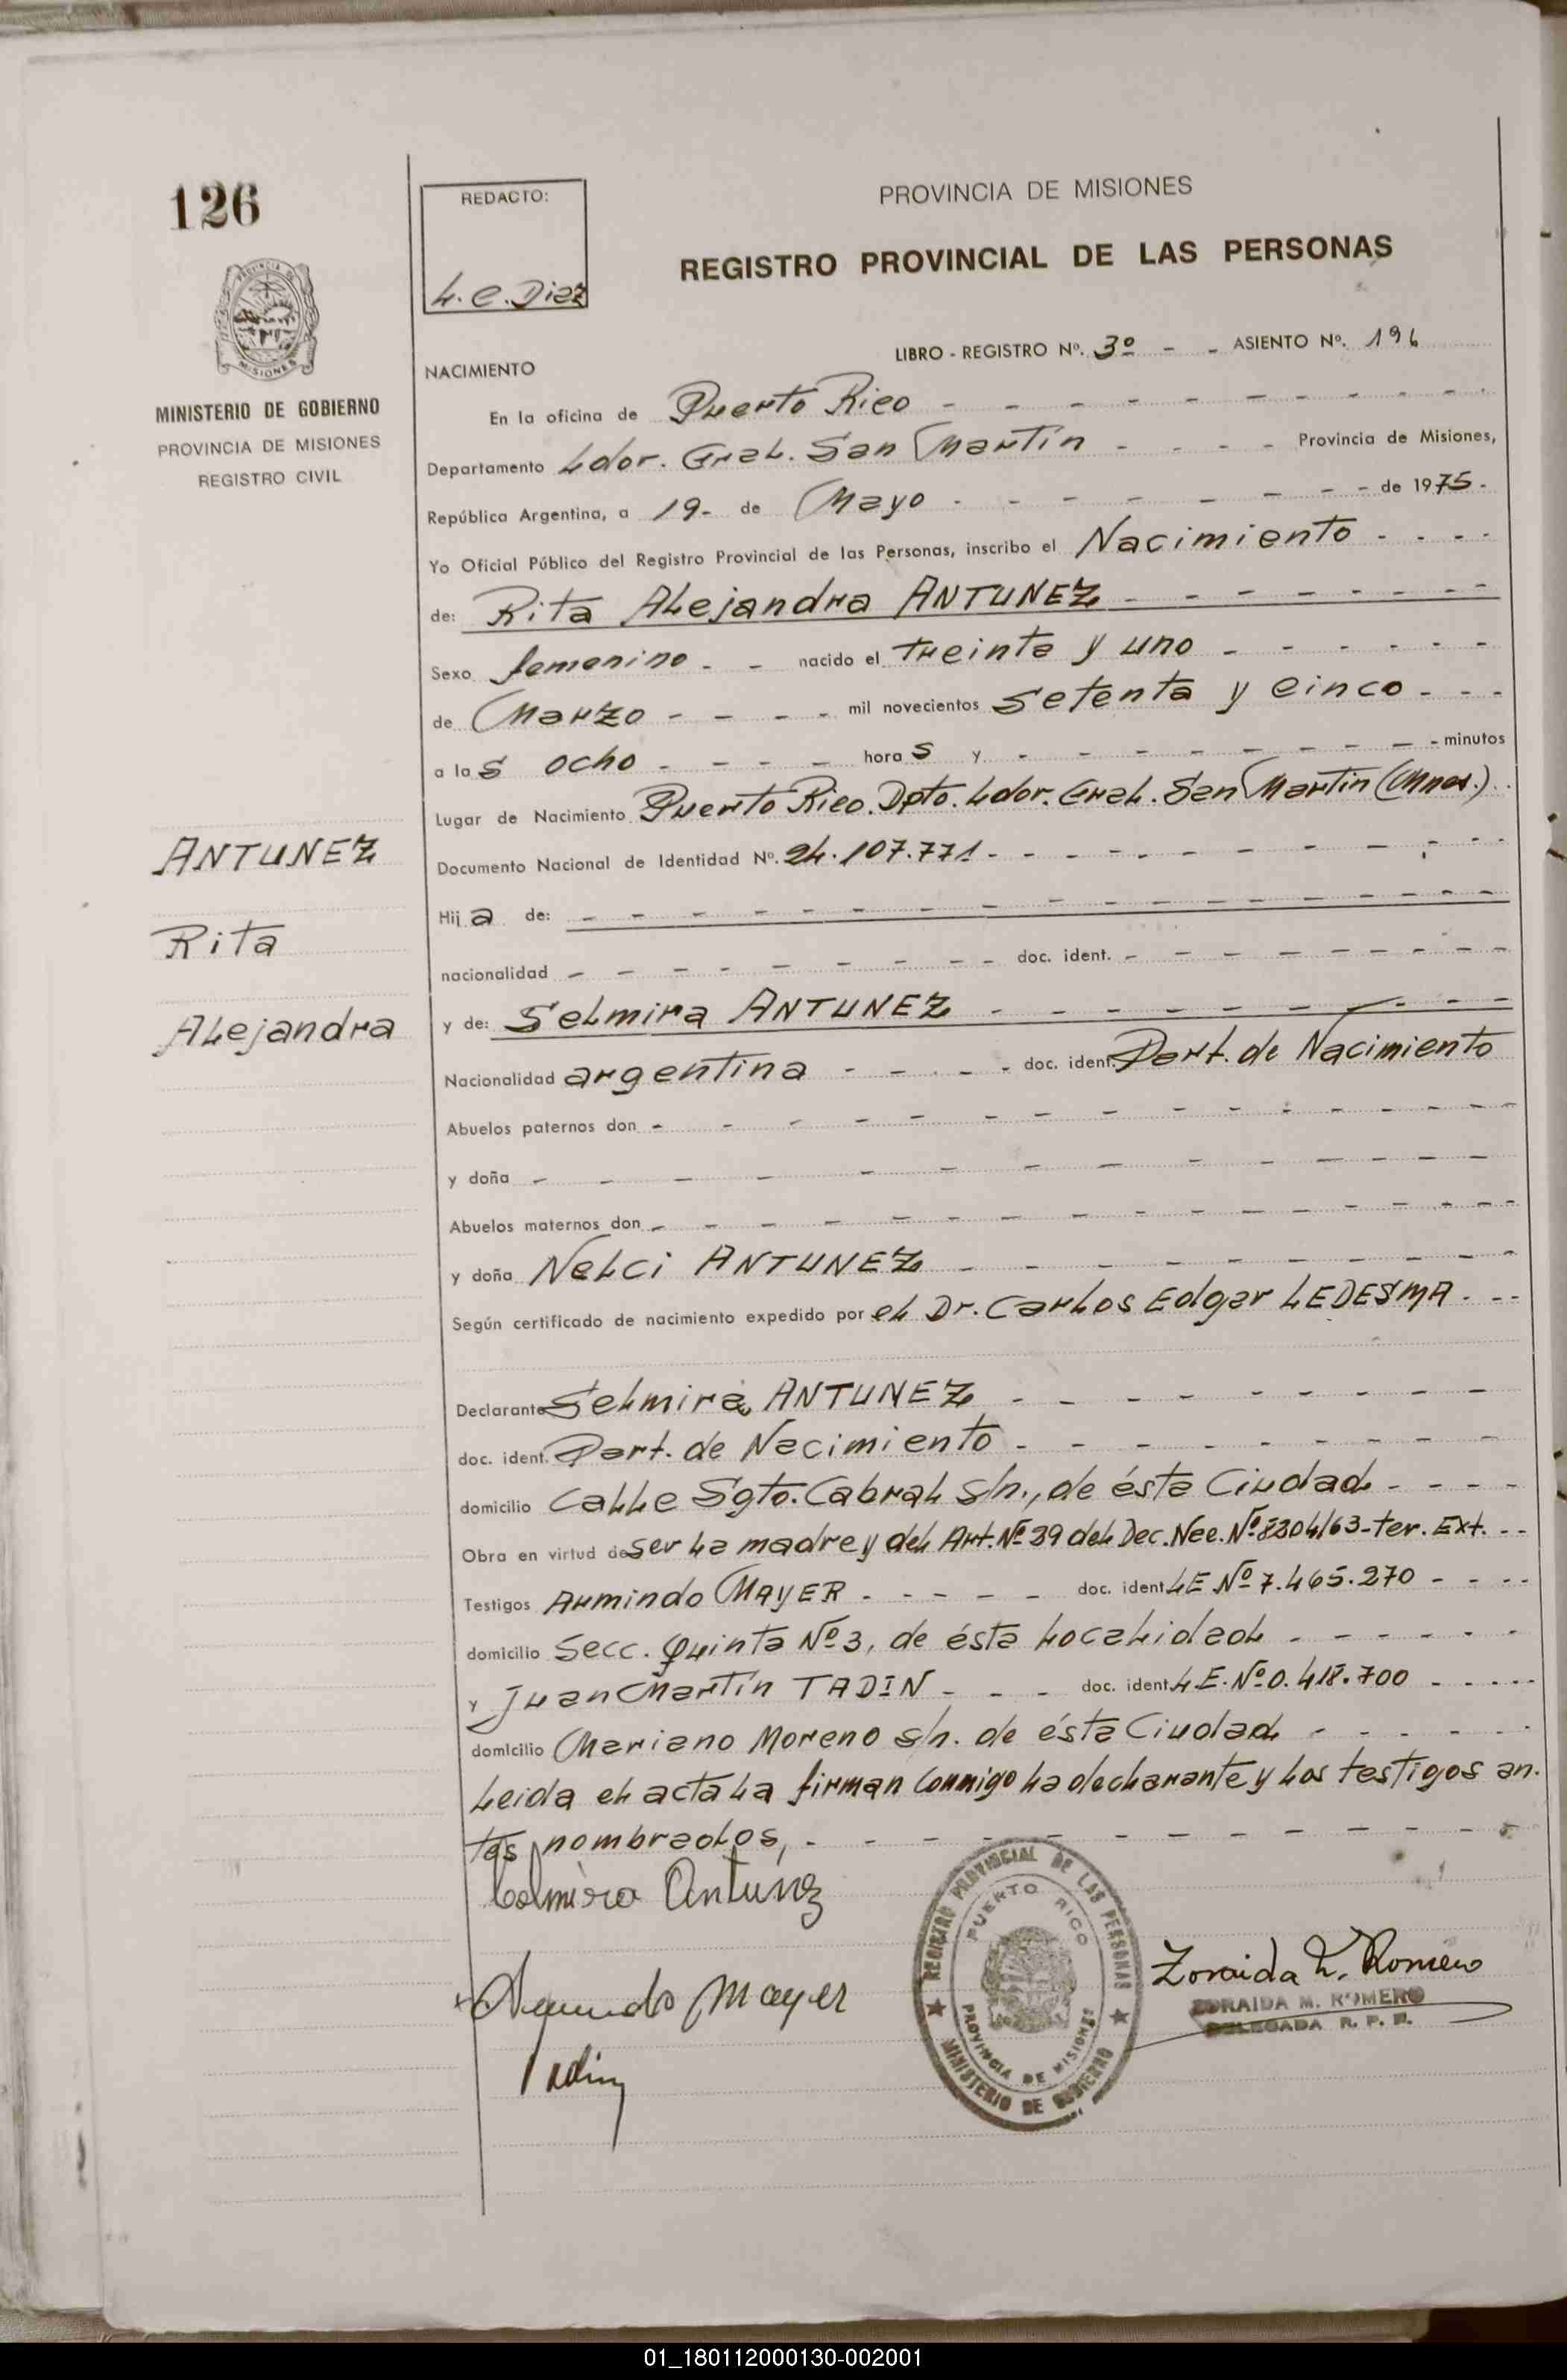 126
REDACTO:
L. C. Diaz
PROVINCIA DE MISIONES
REGISTRO PROVINCIAL DE LAS PERSONAS
PROVINCIA DE MISIONES
MINISTERIO DE GOBIERNO
PROVINCIA DE MISIONES
REGISTRO CIVIL
LIBRO - REGISTRO Nº. 3º - - ASIENTO Nº. 196
NACIMIENTO
En la oficina de Puerto Rico
Departamento Ldor. Gral. San Martín - - - - Provincia de Misiones,
República Argentina, a 19- de Mayo - - - - - - - - de 1975-
Yo Oficial Público del Registro Provincial de las Personas, inscribo el Nacimiento - - - -
de: Rita Alejandra ANTUNEZ
Sexo femenino - - nacido el treinta y uno
de Marzo - - - - mil novecientos setenta y cinco - - -
a las ocho - - - - horas y - - - - - - - - minutos
Lugar de Nacimiento Puerto Rico. Dpto. Ldor. Gral. San Martín (Mnes.)
Documento Nacional de Identidad Nº. 24.107.771
Hija de:
nacionalidad - - - - - - - - doc. ident.
y de: Selmira ANTUNEZ
Nacionalidad argentina - - - - doc. ident. Part. de Nacimiento
Abuelos paternos don
y doña
Abuelos maternos don
y doña Nelci ANTUNEZ
Según certificado de nacimiento expedido por el Dr. Carlos Edgar LEDESMA
ANTUNEZ
Rita
Alejandra
Declarante Selmira ANTUNEZ
doc. ident. Part. de Nacimiento
domicilio Calle Sgto. Cabral s/n., de ésta Ciudad
Obra en virtud de ser la madre y del Art. Nº 39 del Dec. Nac. Nº 8204/63-ter. Ext.
Testigos Armindo MAYER - - - - - doc. ident. LE Nº 7.465.270
domicilio Secc. Quinta Nº 3, de ésta Localidad
y Juan Martín TADIN - - - doc. ident. L.E. Nº 0.418.700
domicilio Mariano Moreno s/n. de ésta Ciudad
Leida el acta la firman conmigo la declarante y los testigos an-
tes nombrados,
Antunez
Mayer
REGISTRO PROVINCIAL DE LAS PERSONAS
PUERTO RICO
PROVINCIA DE MISIONES
MINISTERIO DE GOBIERNO
Zoraida M. Romero
ZORAIDA M. ROMERO
DELEGADA R. P. P.
Tadin
01_180112000130-002001